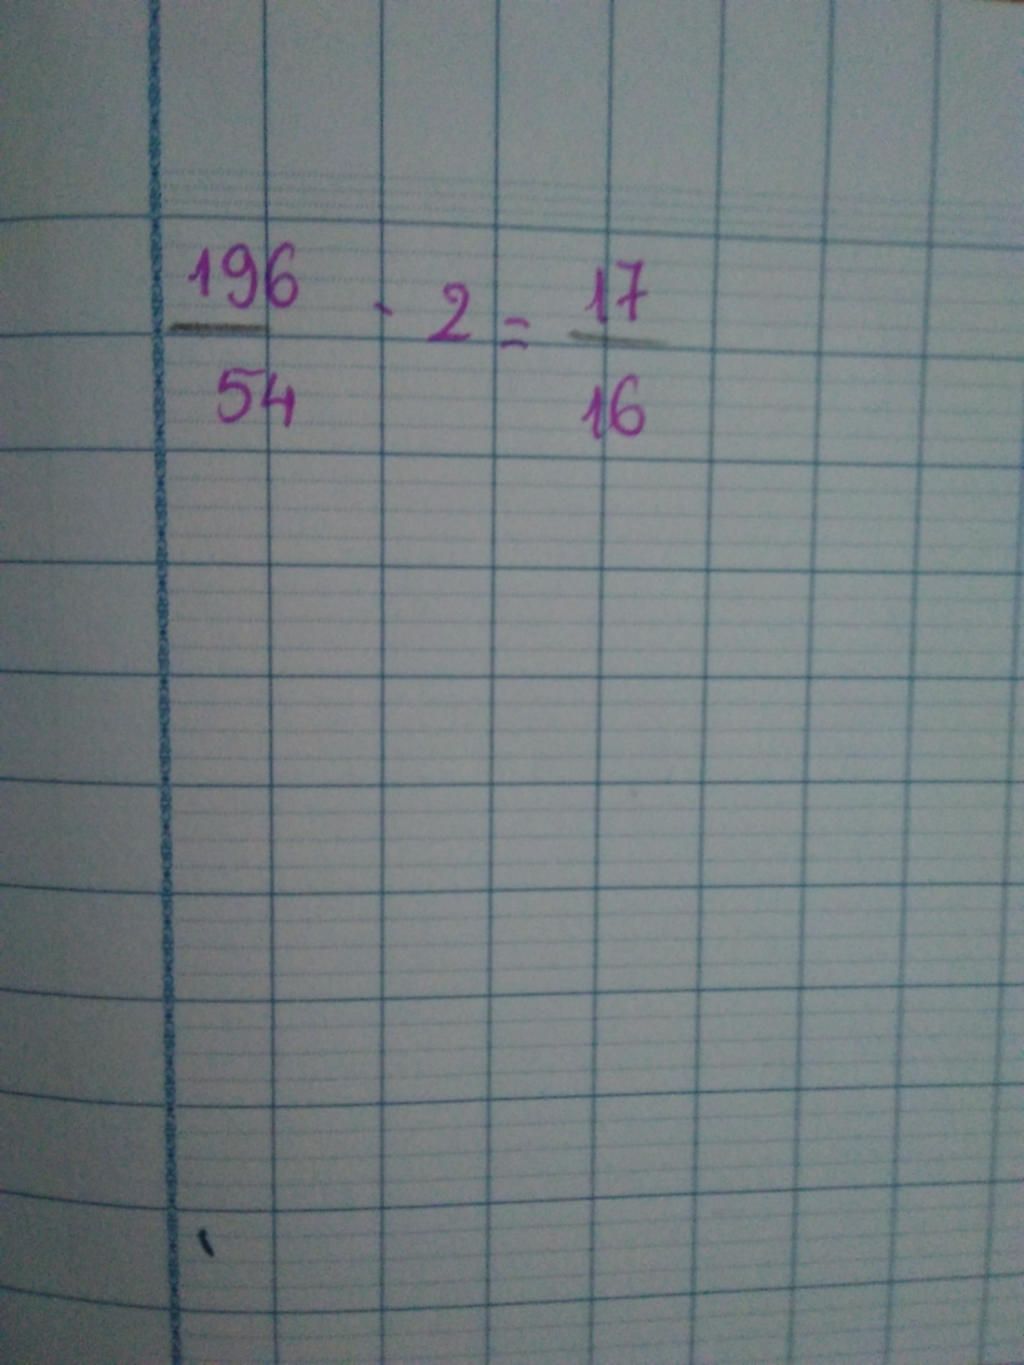 196/54 · 2 = 17/16